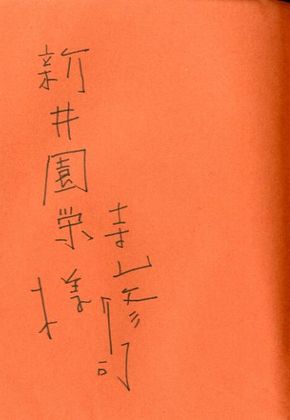 新井園栄様
寺山修司